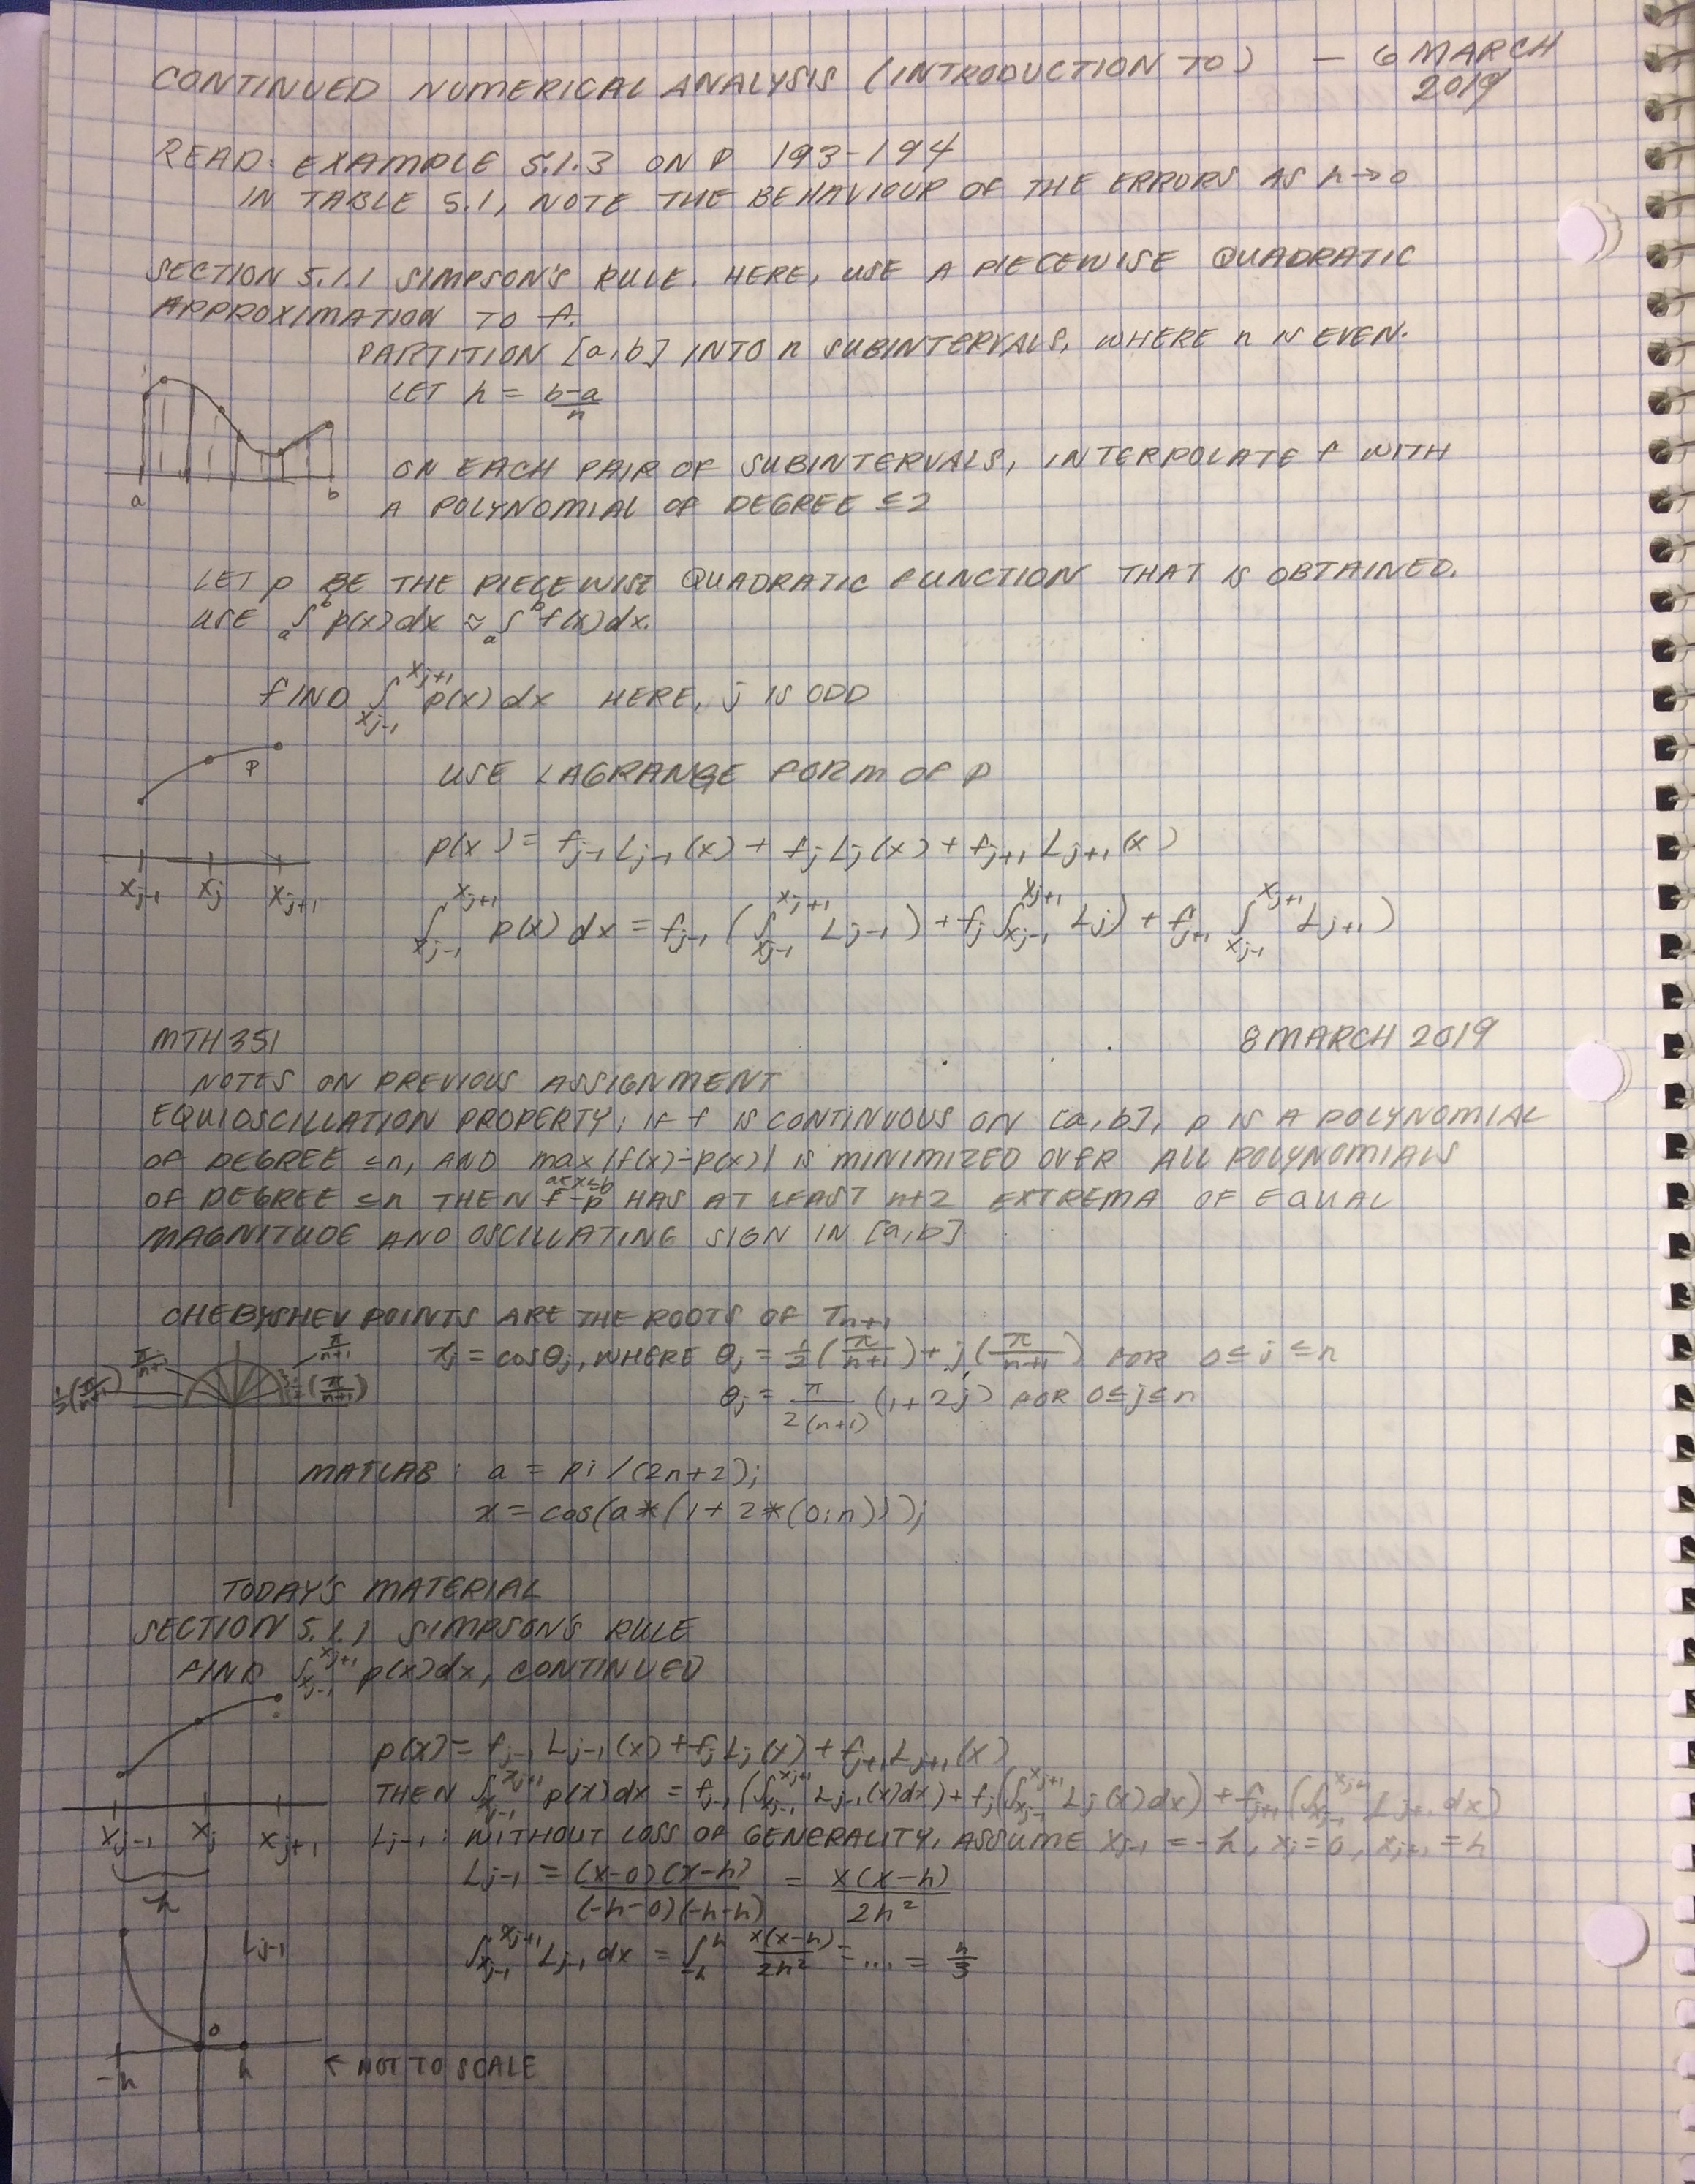 CONTINUED NUMERICAL ANALYSIS (INTRODUCTION TO) — 6 MARCH 2019
READ: EXAMPLE 5.1.3 ON P 193-194
IN TABLE 5.1, NOTE THE BEHAVIOUR OF THE ERRORS AS h→0
SECTION 5.1.1 SIMPSON'S RULE. HERE, USE A PIECEWISE QUADRATIC
APPROXIMATION TO f.
PARTITION [a,b] INTO n SUBINTERVALS, WHERE n IS EVEN.
LET h = (b-a)/n
a b
ON EACH PAIR OF SUBINTERVALS, INTERPOLATE f WITH
A POLYNOMIAL OF DEGREE ≤2
LET p BE THE PIECEWISE QUADRATIC FUNCTION THAT IS OBTAINED.
USE ₐ∫ᵇ p(x)dx ≈ ₐ∫ᵇ f(x)dx.
FIND ∫_{x_{j-1}}^{x_{j+1}} p(x)dx HERE, j IS ODD
p
USE LAGRANGE FORM OF P
p(x) = f_{j-1} L_{j-1}(x) + f_j L_j(x) + f_{j+1} L_{j+1}(x)
x_{j-1} x_j x_{j+1}
∫_{x_{j-1}}^{x_{j+1}} p(x) dx = f_{j-1} (∫_{x_{j-1}}^{x_{j+1}} L_{j-1}) + f_j ∫_{x_{j-1}}^{x_{j+1}} L_j) + f_{j+1} ∫_{x_{j-1}}^{x_{j+1}} L_{j+1})
MTH 351 8 MARCH 2019
NOTES ON PREVIOUS ASSIGNMENT
EQUIOSCILLATION PROPERTY: IF f IS CONTINUOUS ON [a,b], p IS A POLYNOMIAL
OF DEGREE ≤n, AND max_{a≤x≤b} |f(x)-p(x)| IS MINIMIZED OVER ALL POLYNOMIALS
OF DEGREE ≤n THEN f-p HAS AT LEAST n+2 EXTREMA OF EQUAL
MAGNITUDE AND OSCILLATING SIGN IN [a,b]
CHEBYSHEV POINTS ARE THE ROOTS OF T_{n+1}
π/(n+1) π/(n+1)
x_j = cosθ_j, WHERE θ_j = ½(π/(n+1)) + j(π/(n+1)) FOR 0≤j≤n
½(π/(n+1)) ½(π/(n+1))
θ_j = π/(2(n+1)) (1+2j) FOR 0≤j≤n
MATLAB: a = pi/(2n+2);
x = cos(a*(1+2*(0:n)));
TODAY'S MATERIAL
SECTION 5.1.1 SIMPSON'S RULE
FIND ∫_{x_{j-1}}^{x_{j+1}} p(x)dx, CONTINUED
p(x) = f_{j-1} L_{j-1}(x) + f_j L_j(x) + f_{j+1} L_{j+1}(x)
THEN ∫_{x_{j-1}}^{x_{j+1}} p(x)dx = f_{j-1} (∫_{x_{j-1}}^{x_{j+1}} L_{j-1}(x)dx) + f_j (∫_{x_{j-1}}^{x_{j+1}} L_j(x)dx) + f_{j+1} (∫_{x_{j-1}}^{x_{j+1}} L_{j+1} dx)
x_{j-1} x_j x_{j+1}
L_{j-1}: WITHOUT LOSS OF GENERALITY, ASSUME x_{j-1} = -h, x_j = 0, x_{j+1} = h
h
L_{j-1} = (x-0)(x-h)/((-h-0)(-h-h)) = x(x-h)/(2h²)
L_{j-1}
∫_{x_{j-1}}^{x_{j+1}} L_{j-1} dx = ∫_{-h}^{h} x(x-h)/(2h²) = ... = h/3
0
-h h
← NOT TO SCALE